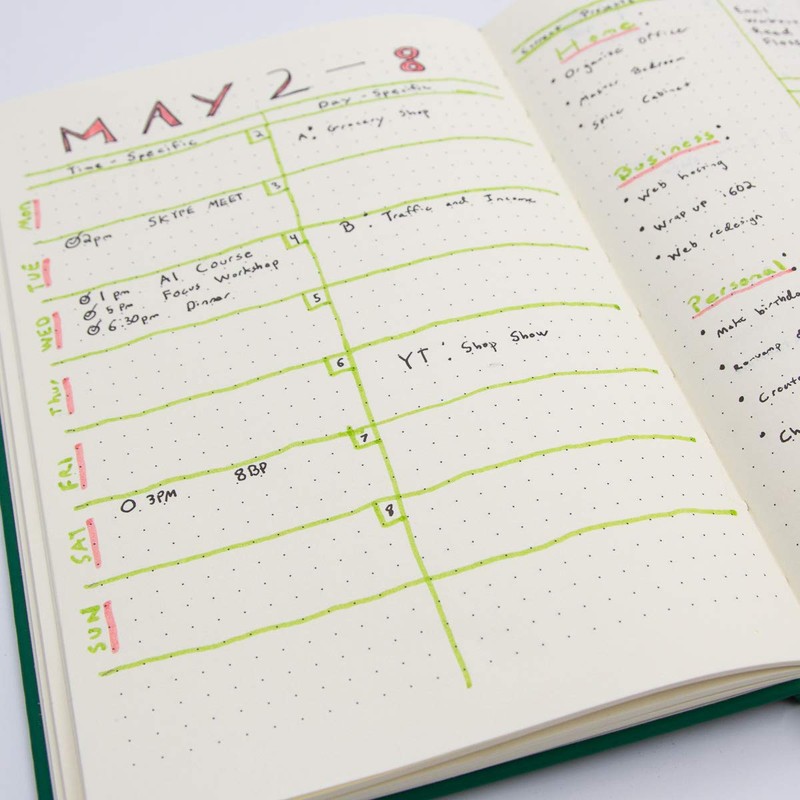 MAY 2 — 8
Time - Specific
Day - Specific
2
A: Grocery Shop
MON
3
2pm SKYPE MEET
B: Traffic and Income
TUE
4
1 pm A1 Course
5 pm Focus Workshop
6:30pm Dinner
WED
5
THUR
6
YT: Shop Show
FRI
7
3PM 8BP
SAT
8
SUN
Current Projects
Home:
• Organize Office
• Master Bedroom
• Spice Cabinet
Business:
• Web hosting
• Wrap up i602
• Web redesign
Personal:
• Make birthda
• Revamp
• Create
• Ch
Read
Floss